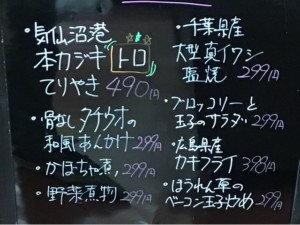 ・気仙沼港
本カジキ トロ
てりやき 490円
・骨なしタチウオの
和風あんかけ 299円
・かぼちゃ煮 299円
・野菜煮物 299円
・千葉県産
大型真イワシ
塩焼 299円
・ブロッコリーと
玉子のサラダ 299円
・広島県産
カキフライ 398円
・ほうれん草の
ベーコン玉子炒め 299円